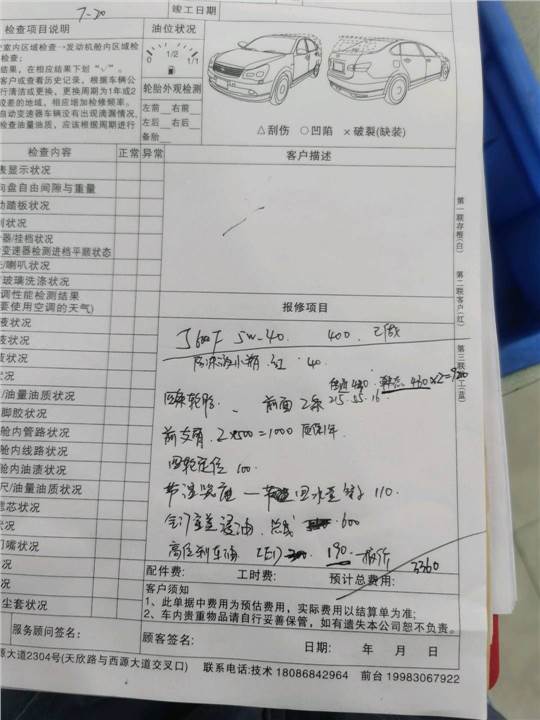 7-20
竣工日期
检查项目说明
油位状况
室内区域检查→发动机舱内区域检
检查:
结果，在相应结果下划"√"。
客户或查看历史记录，根据车辆公
行清洁或更换，更换周期为1年或2
较差的地域，相应增加检修频率。
自动变速器车辆没有出现滴漏情况，
检查油量油质，应该根据周期进行
0 1/2 1/1
轮胎外观检测
左前 右前
左后 右后
备胎
△刮伤 ○凹陷 ×破裂(缺装)
检查内容 正常 异常 客户描述
表显示状况
向盘自由间隙与重量
动踏板状况
制状况
/挂档状况
变速器检测进档平顺状态
/喇叭状况
玻璃洗涤状况
调性能检测结果
要使用空调的天气)
液状况
液状况
状况
状况
/油量油质状况
脚胶状况
舱内管路状况
舱内线路状况
舱内油渍状况
尺/油量油质状况
滤芯状况
状况
门嘴状况
状况
尘套状况
第一联存根(白)
第二联客户(红)
第三联
报修项目
5W-40 400 已做
防冻液小瓶 红 40
430 韩泰 430×2=
四条轮胎 前面2条 215.55.16
前支臂 2×500=1000 质保1年
四轮定位 100
110
600
高位刹车 190 报价
3360
配件费: 工时费: 预计总费用:
客户须知
1、此单据中费用为预估费用，实际费用以结算单为准;
2、车内贵重物品请自行妥善保管，如有遗失本公司恕不负责。
服务顾问签名: 顾客签名: 日期: 年 月 日
源大道2304号(天欣路与西源大道交叉口) 联系电话:技术 18086842964 前台 19983067922